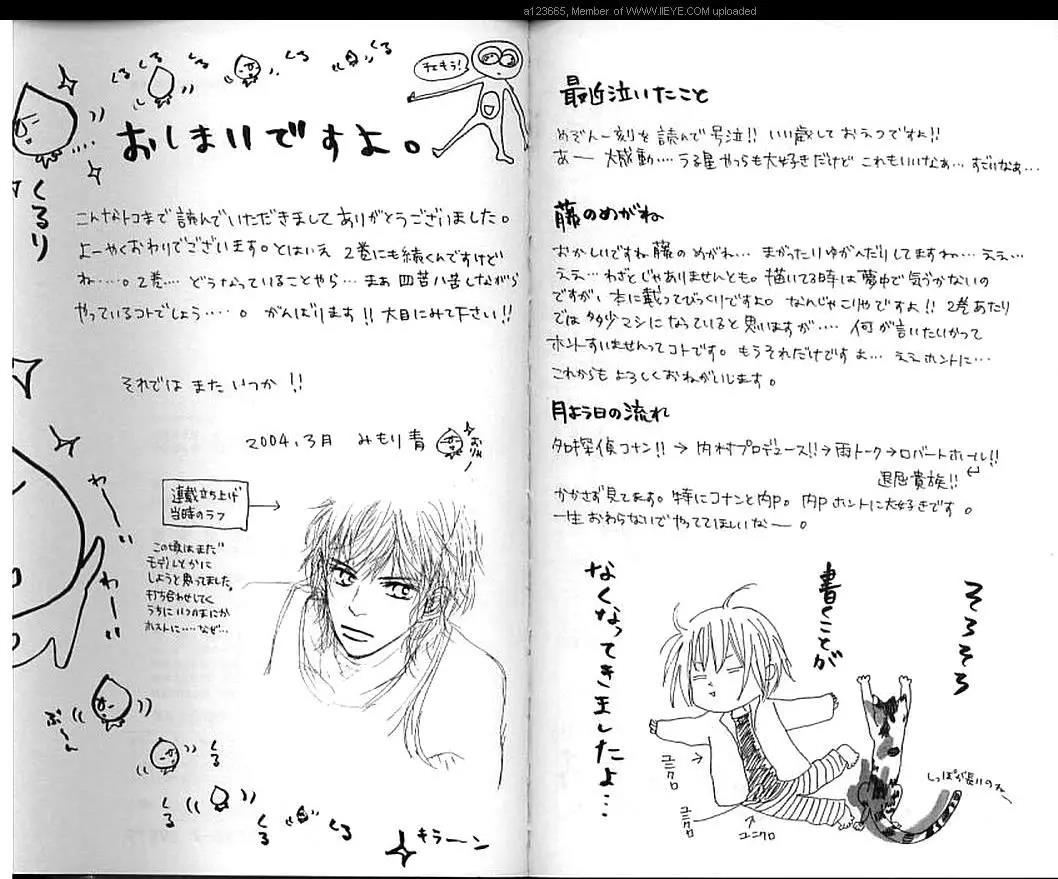 a123665, Member of WWW.IIEYE.COM uploaded
くる
くる
くる
くる
くる
くるり
おしまいですよ。
こんなトコまで読んでいただきましてありがとうございました。
よーやくおわりでございます。とはいえ 2巻にも続くんですけど
ね‥‥。2巻‥‥ どうなっていることやら… まぁ 四苦八苦しながら
やっているコトでしょう‥‥。 がんばります!! 大目にみて下さい!!
それでは また いつか !!
2004.3月 みもり青
連載立ち上げ
当時のラフ
この頃はまだ
モデルとかに
しようと思ってました。
打ち合わせしてく
うちにいつのまにか
ホストに‥‥なぜ…
わーい
わーい
ぶーん
くる
くる
くる
くる
キラーン
最近泣いたこと
めぞん一刻を読んで号泣!! いい歳しておえつですね!!
あー 大感動‥‥ うる星やつらも大好きだけど これもいいなぁ… すごいなぁ…
藤のめがね
おかしいですね 藤のめがね… まがったりゆがんだりしてますね… ええ…
ええ… わざとじゃありませんとも。描いてる時は夢中で気づかないの
ですが、本に載ってびっくりですよ。なんじゃこりゃですよ!! 2巻あたり
では多少マシになっていると思いますが‥‥ 何が言いたいかって
ホントすいませんってコトです。もうそれだけですよ… ええホントに…
これからも よろしくおねがいします。
月よう日の流れ
名探偵コナン!! → 内村プロデュース!! → 雨トーク → ロバートホール!!
退屈貴族!!
かかさず見てます。特にコナンと内P。内P ホントに大好きです。
一生おわらないでやっててほしいなー。
そろそろ
書くことが
なくなってきましたよ…
ユニクロ
ユニクロ
ユニクロ
しっぽが長いのねー